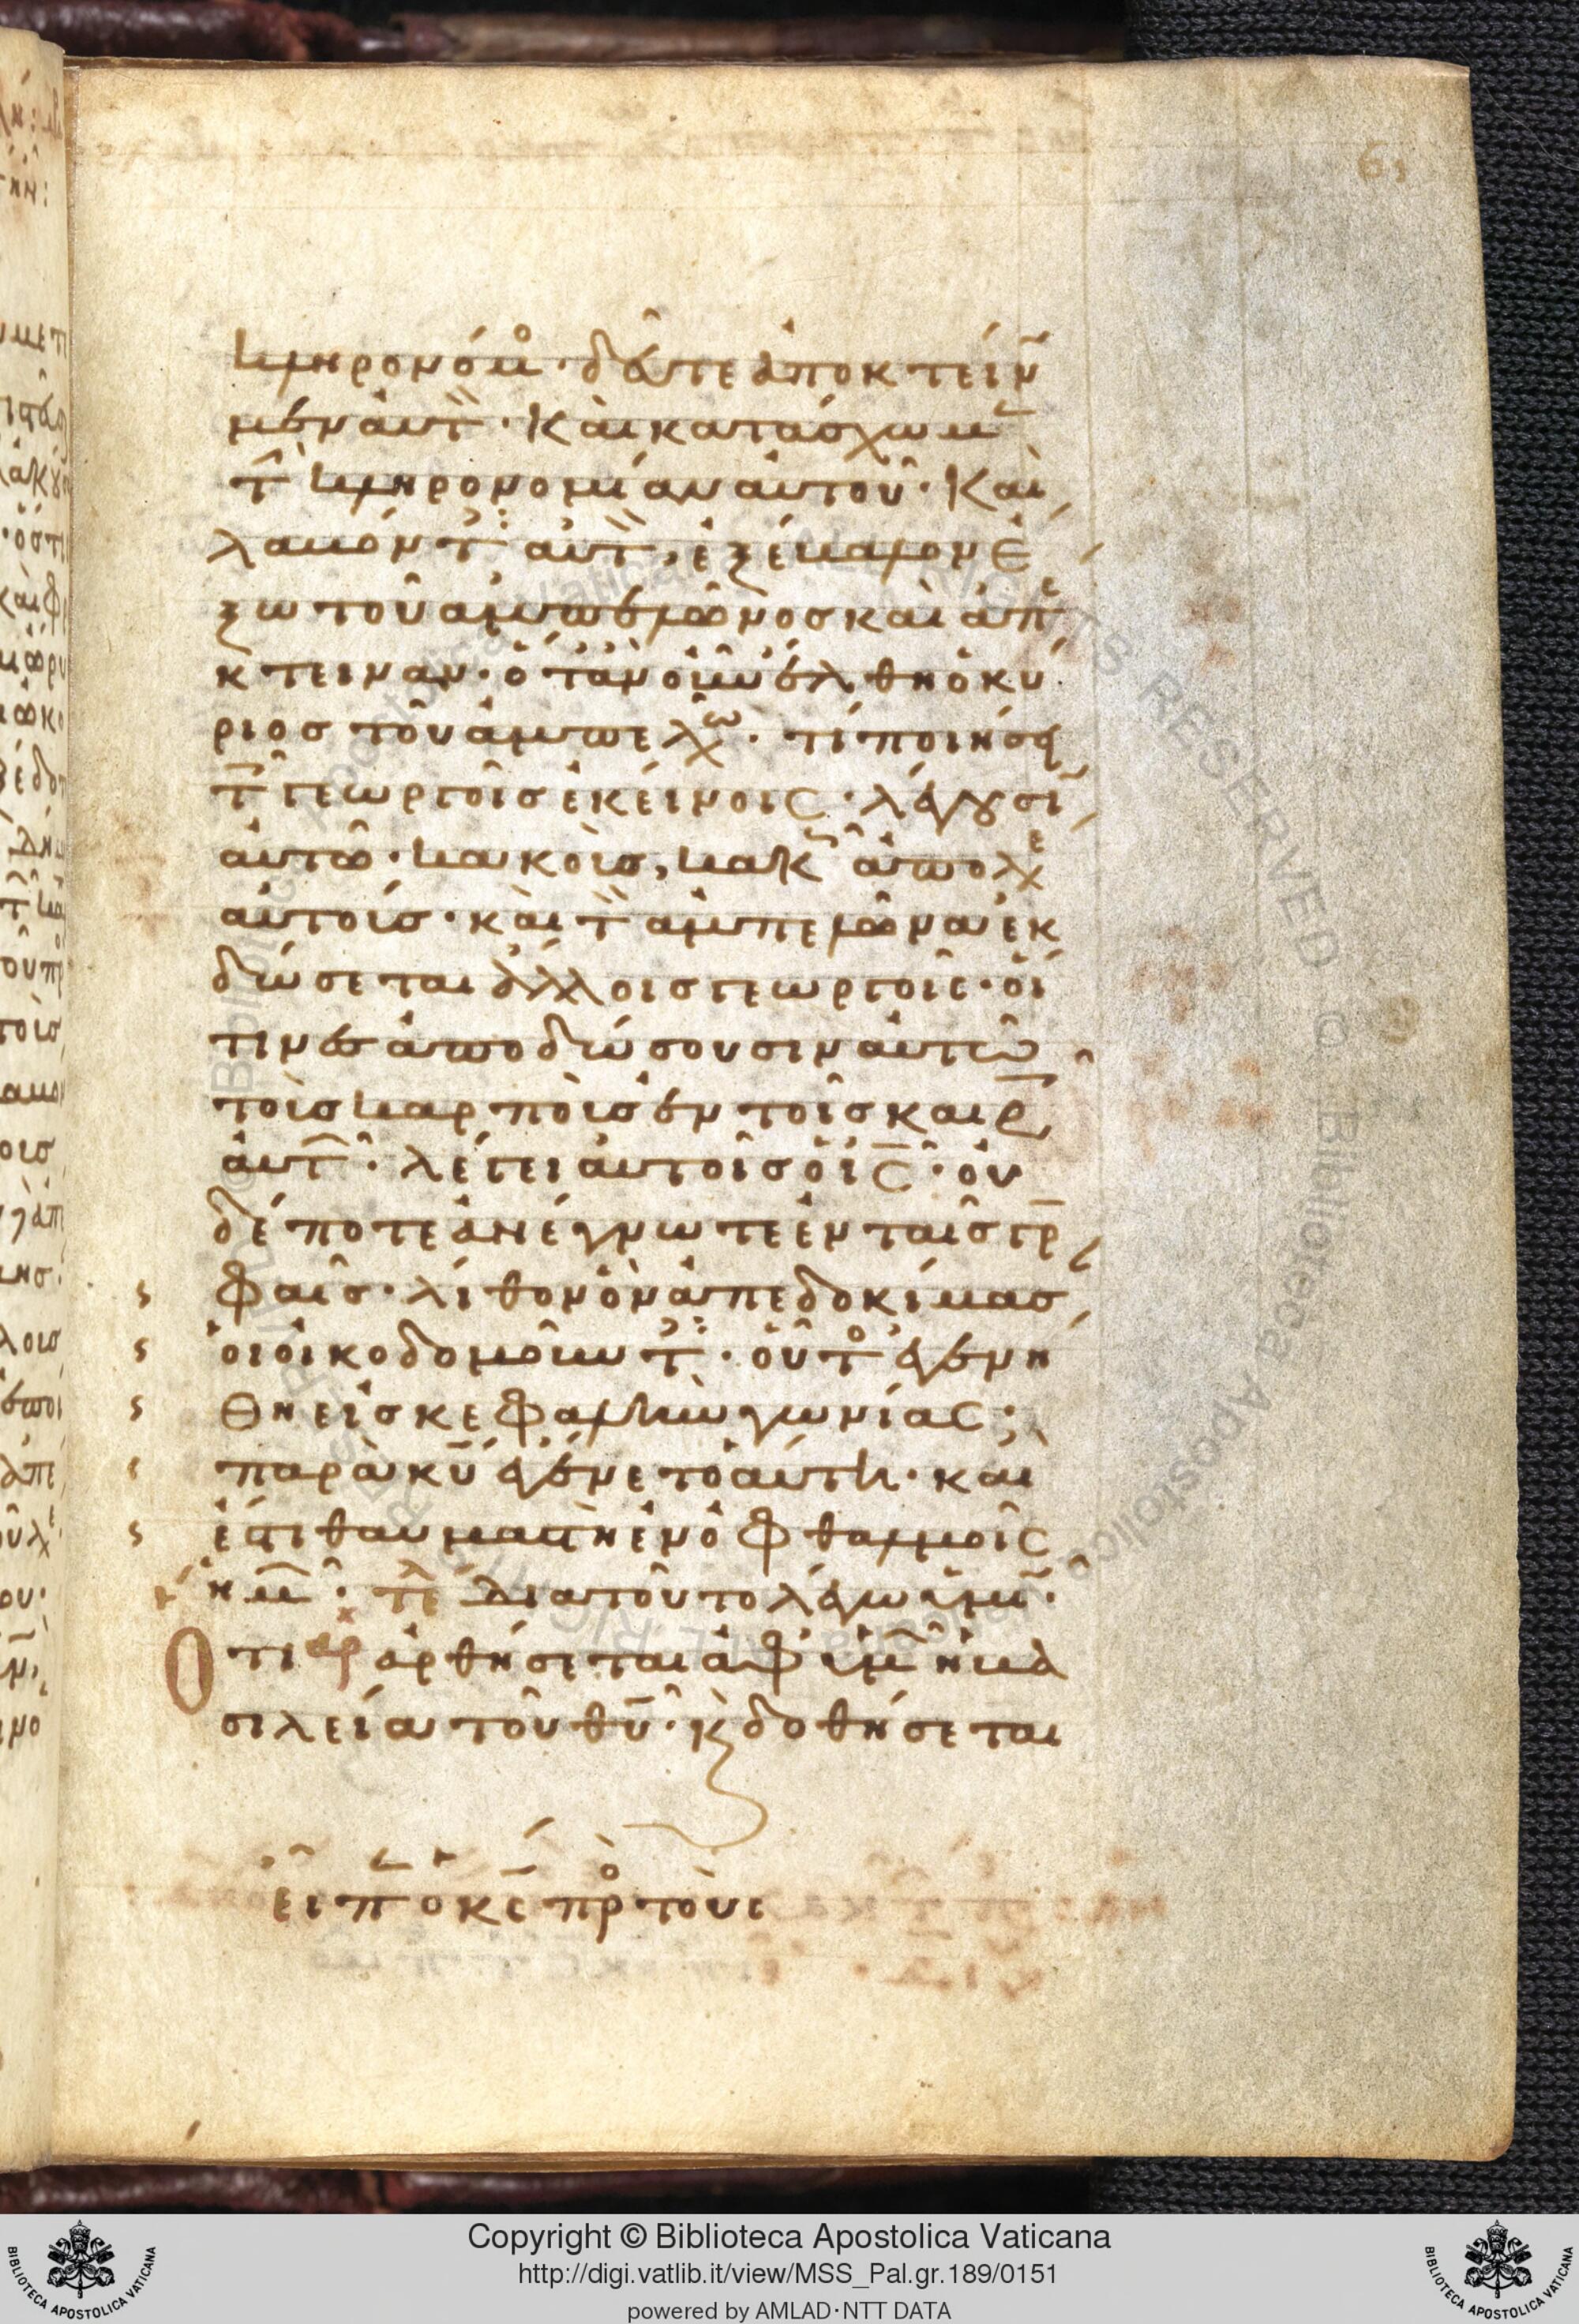 61
κληρονόμ· δεῦτε ἀποκτείν
μεν αυτ· Και κατάσχωμ
τ κληρονομίαν αυτοῦ· Και
λαβόντ αυτ, ἐξέβαλον ἐ
ξω τοῦ αμπελῶνος καὶ ἀπ
κτειναν· ὅταν οὖν έλθη ὁ κύ
ριος τοῦ αμπελω· τί ποιήσει
τ γεωργοῖς ἐκείνοις· λέγουσι
αυτῶ· κακοὺς, κακ ἀπολε
αυτούς· καὶ τ αμπελῶνα ἐκ
δώσεται άλλοις γεωργοῖς· οί
τινες ἀποδώσουσιν αυτῶ
τοὺς καρποὺς ἐν τοῖς καιρ
αυτ· λέγει αυτοῖς ὁ ις· οὐ
δέποτε ἀνέγνωτε ἐν ταῖς γρ
φαῖς· λίθον ὃν ἀπεδοκίμασ
οἱ οἰκοδομοῦντ· οὗτο ἐγενή
θη εἰς κεφαλὴν γωνίας·
παρὰ κυ ἐγένετο αύτη· και
ἐστι θαυμαστὴ ἐν ὀφθαλμοῖς
ημ· τε Δια τοῦτο λέγω ὑμ·
Οτι αρ αρθήσεται ἀφ ὑμ η βα
σιλεία τοῦ θυ· κ δοθήσεται
εἶπ ο κς πρ τοὺς
Copyright © Biblioteca Apostolica Vaticana
http://digi.vatlib.it/view/MSS_Pal.gr.189/0151
powered by AMLAD·NTT DATA